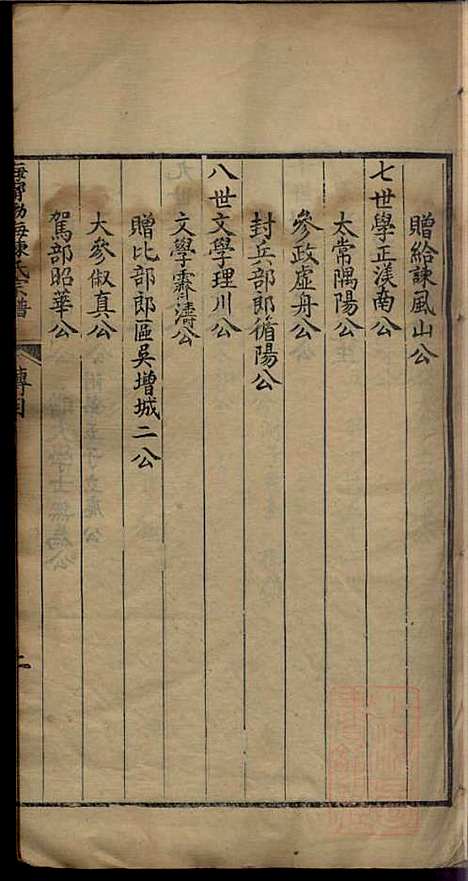 贈給諫風山公
七世學正渼南公
太常隅陽公
參政虛舟公
封兵部郎循陽公
八世文學理川公
文學霽濤公
贈比部郎區吳增城二公
大參俶真公
駕部昭華公
海寧渤海陳氏宗譜
傳目
二